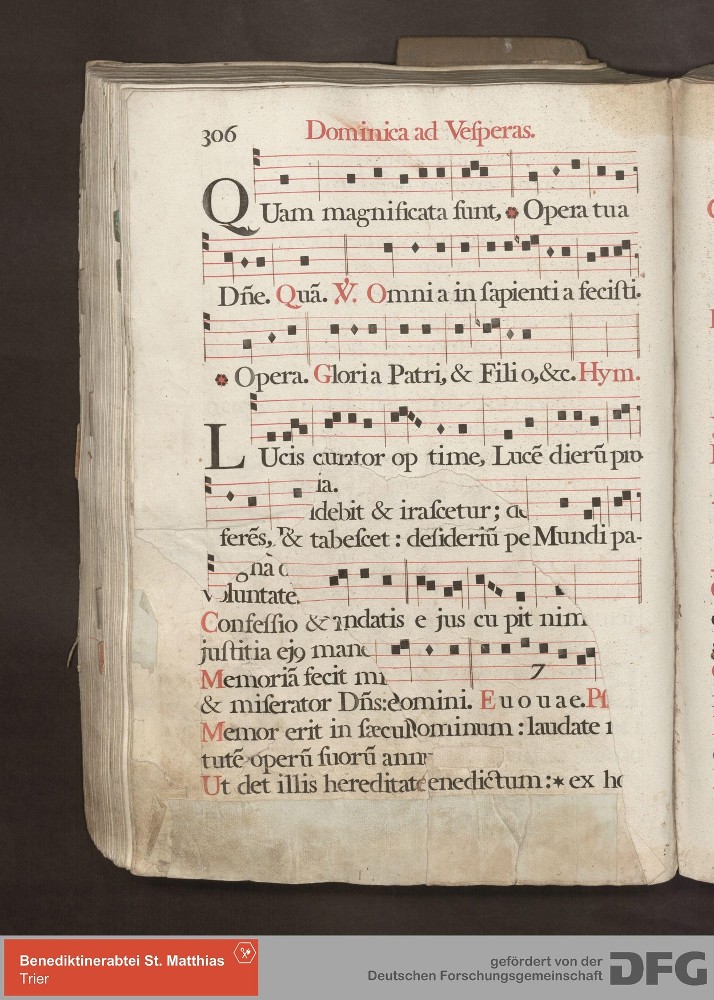 306 Dominica ad Veſperas.
QUam magnificata ſunt, Opera tua
Dñe. Quã. ℣. Omni a in ſapienti a feciſti.
Opera. Gloria Patri, & Fili o, &c. Hym.
LUcis cu op time, Lucẽ dierũ pro
ia.
idebit & iraſcetur;
ferẽs, & tabeſcet: deſideriũ pe Mundi pa-
gnã
voluntate
Confeſſio & andatis e jus cu pit nim
juſtitia ejꝰ mane
Memoriã fecit mi
7
& miſerator Dñs: domini. E u o u a e. Pſ
Memor erit in ſæcul ominum: laudate
tutẽ operũ ſuorũ ann
Ut det illis hereditate enedictum: * ex ho
Benediktinerabtei St. Matthias
Trier
gefördert von der
Deutschen Forschungsgemeinschaft
DFG